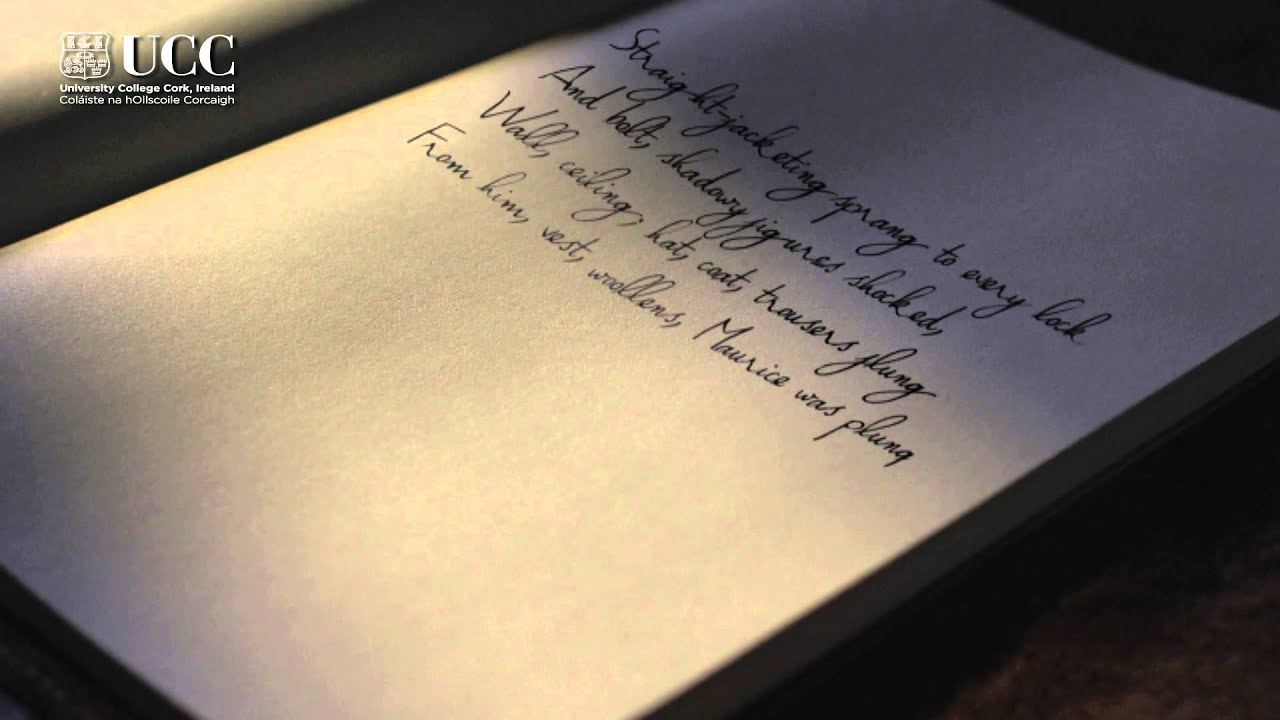 UCC
University College Cork, Ireland
Coláiste na hOllscoile Corcaigh
Straight-jacketing sprang to every lock
And bolt, shadowy figures shocked,
Wall, ceiling; hat, coat, trousers flung
From him, vest, woollens, Maurice was plung